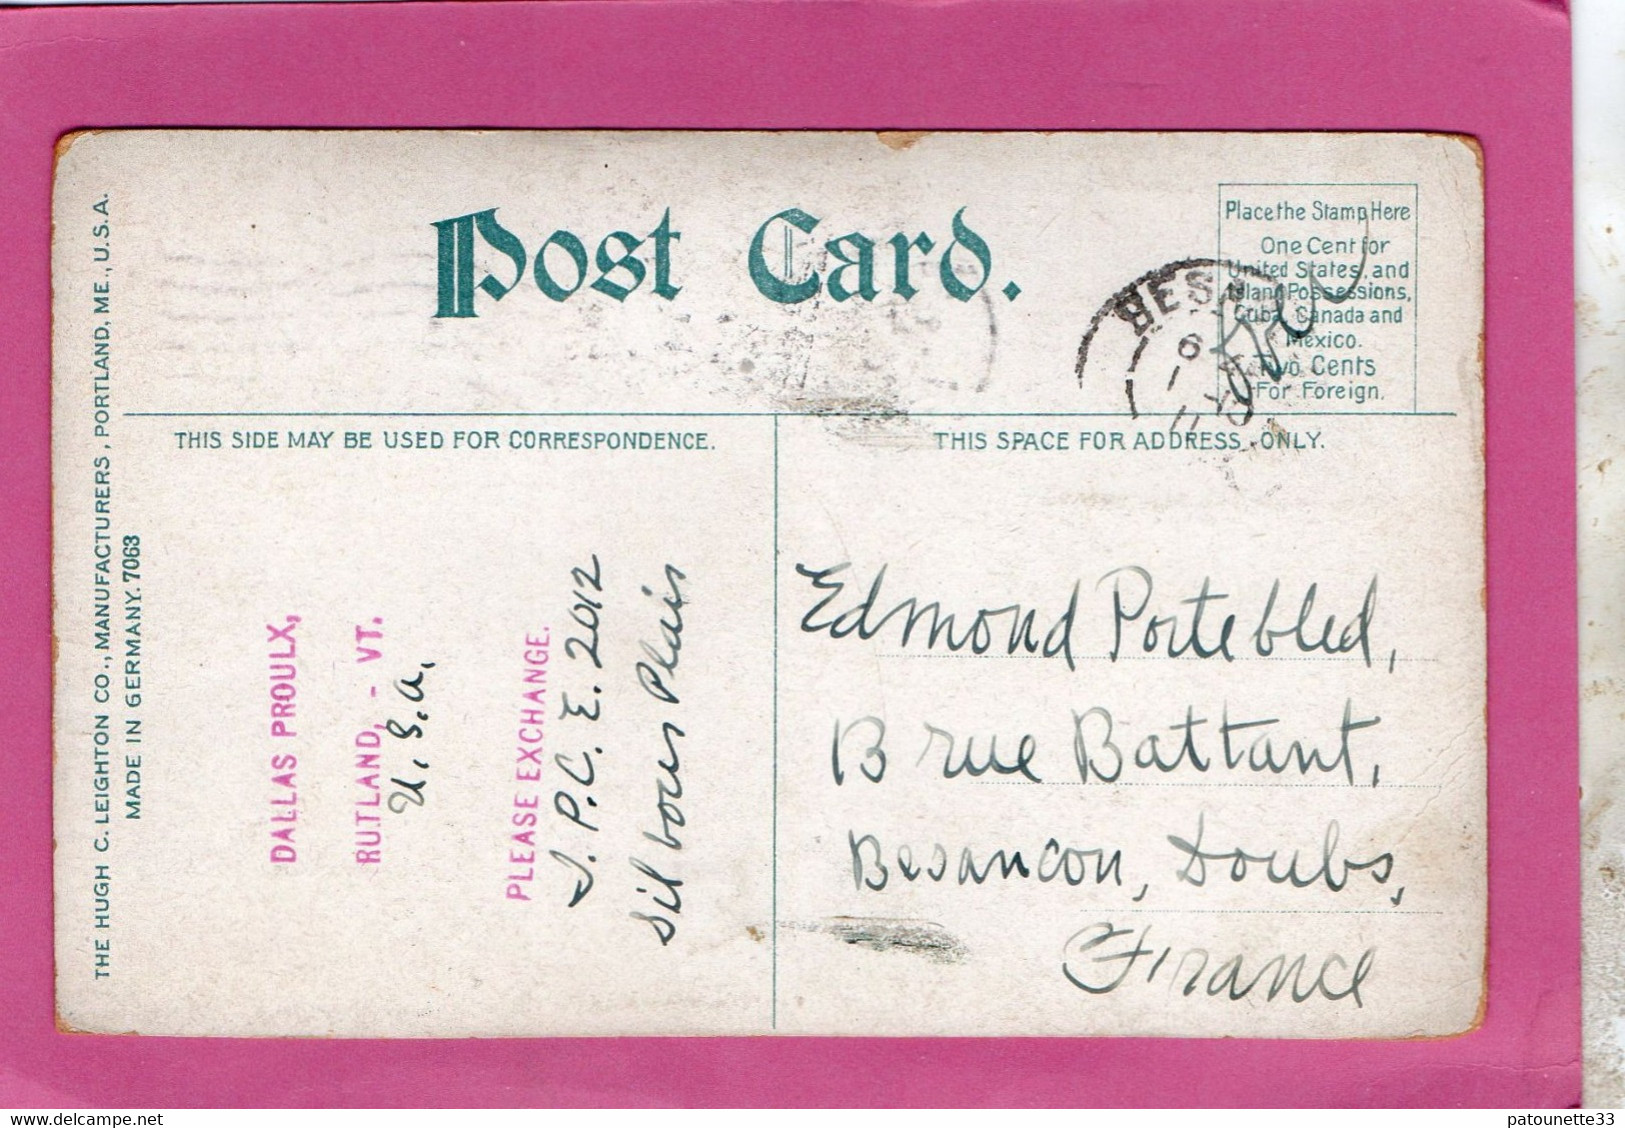 THE HUGH C. LEIGHTON CO., MANUFACTURERS, PORTLAND, ME., U.S.A.
MADE IN GERMANY. 7063
Post Card.
Place the Stamp Here
One Cent for
United States, and
Island Possessions,
Cuba, Canada and
Mexico.
Two Cents
For Foreign.
BESA
THIS SIDE MAY BE USED FOR CORRESPONDENCE.
THIS SPACE FOR ADDRESS ONLY.
DALLAS PROULX,
RUTLAND, - VT.
U. S. a.
PLEASE EXCHANGE.
I. P. C. E. 2012
Sil vous Plais
Edmond Portebled,
B rue Battant,
Besancon, Doubs,
France
www.delcampe.net
patounette33